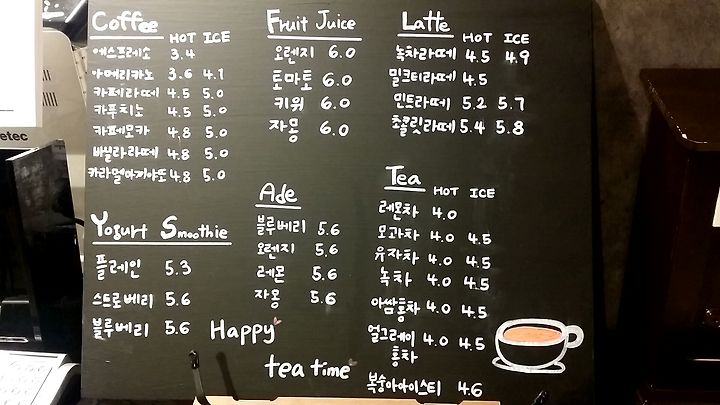 Coffee HOT ICE
에스프레소 3.4
아메리카노 3.6 4.1
카페라떼 4.5 5.0
카푸치노 4.5 5.0
카페모카 4.8 5.0
바닐라라떼 4.8 5.0
카라멜마끼아또 4.8 5.0
Yogurt Smoothie
플레인 5.3
스트로베리 5.6
블루베리 5.6
Fruit Juice
오렌지 6.0
토마토 6.0
키위 6.0
자몽 6.0
Ade
블루베리 5.6
오렌지 5.6
레몬 5.6
자몽 5.6
Latte HOT ICE
녹차라떼 4.5 4.9
밀크티라떼 4.5
민트라떼 5.2 5.7
초콜릿라떼 5.4 5.8
Tea HOT ICE
레몬차 4.0
모과차 4.0 4.5
유자차 4.0 4.5
녹차 4.0 4.5
아쌈홍차 4.0 4.5
얼그레이 4.0 4.5
홍차
복숭아아이스티 4.6
Happy
tea time
etec